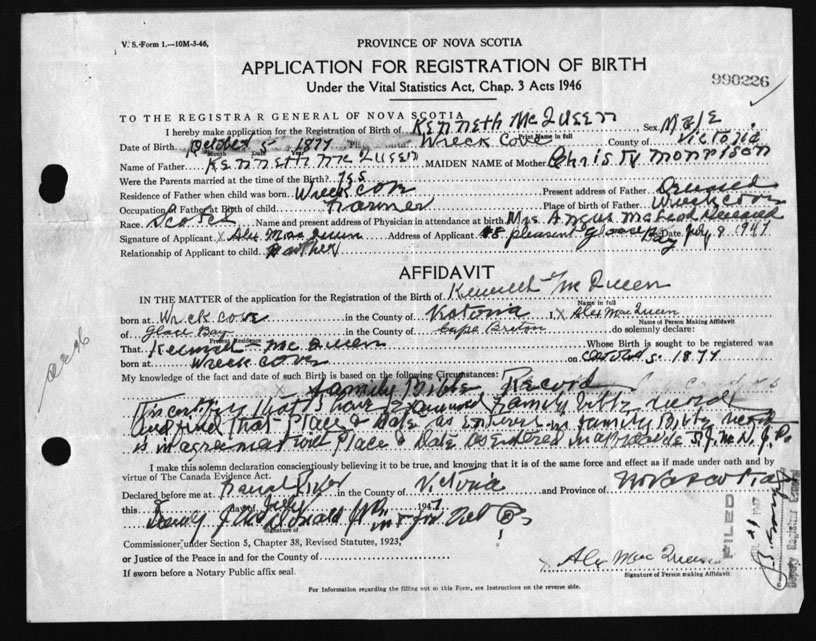 V. S. Form 1.—10M-3-46,
PROVINCE OF NOVA SCOTIA
APPLICATION FOR REGISTRATION OF BIRTH
990226
Under the Vital Statistics Act, Chap. 3 Acts 1946
TO THE REGISTRAR GENERAL OF NOVA SCOTIA
I hereby make application for the Registration of Birth of Kenneth McQueen Sex Male
Print Name in full
Date of Birth October 5 1877 Wreck Cove County of Victoria
Month Date Year
Name of Father Kenneth McQueen MAIDEN NAME of Mother Christy Morrison
Were the Parents married at the time of the Birth? yes
Residence of Father when child was born Wreck Cove Present address of Father Deceased
Occupation of Father at Birth of child Farmer Place of Birth of Father Wreck Cove
Race Scotch Name and present address of Physician in attendance at birth Mrs Angus McLeod Deceased
Signature of Applicant x Alex MacQueen Address of Applicant 48 pleasant Glace Bay Date July 9 1947
Relationship of Applicant to child Brother
AFFIDAVIT
IN THE MATTER of the application for the Registration of the Birth of Kenneth McQueen
Name in full
born at Wreck Cove in the County of Victoria I, x Alex MacQueen
Name of Person Making Affidavit
of Glace Bay in the County of Cape Breton do solemnly declare:
Present Residence
That Kenneth McQueen Whose Birth is sought to be registered was
born at Wreck Cove on October 5 1877
My knowledge of the fact and date of such Birth is based on the following Circumstances:
x Family Bible Record
This certify that I have Family bible record
and find that Place & Date as Entered in family Bible
is in agreement with Place & Date as entered
I make this solemn declaration conscientiously believing it to be true, and knowing that it is of the same force and effect as if made under oath and by
virtue of The Canada Evidence Act.
Declared before me at in the County of Victoria and Province of Nova Scotia
this day of July 1947
Signature of
Commissioner, under Section 5, Chapter 38, Revised Statutes, 1923,
or Justice of the Peace in and for the County of
If sworn before a Notary Public affix seal.
x Alex MacQueen
Signature of Person Making Affidavit
For Information regarding the filling out of this Form, see Instructions on the reverse side.
FILED
Deputy Registrar General